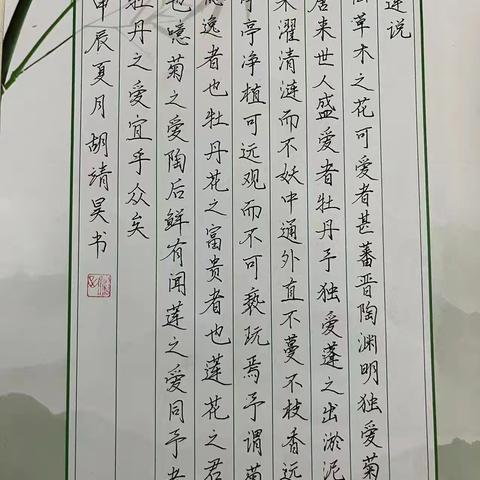 莲说
陆草木之花可爱者甚蕃晋陶渊明独爱菊
唐来世人盛爱者牡丹予独爱莲之出淤泥
染濯清涟而不妖中通外直不蔓不枝香远
亭亭净植可远观而不可亵玩焉予谓菊
隐逸者也牡丹花之富贵者也莲花之君
也噫菊之爱陶后鲜有闻莲之爱同予者
牡丹之爱宜乎众矣
甲辰夏月胡靖昊书